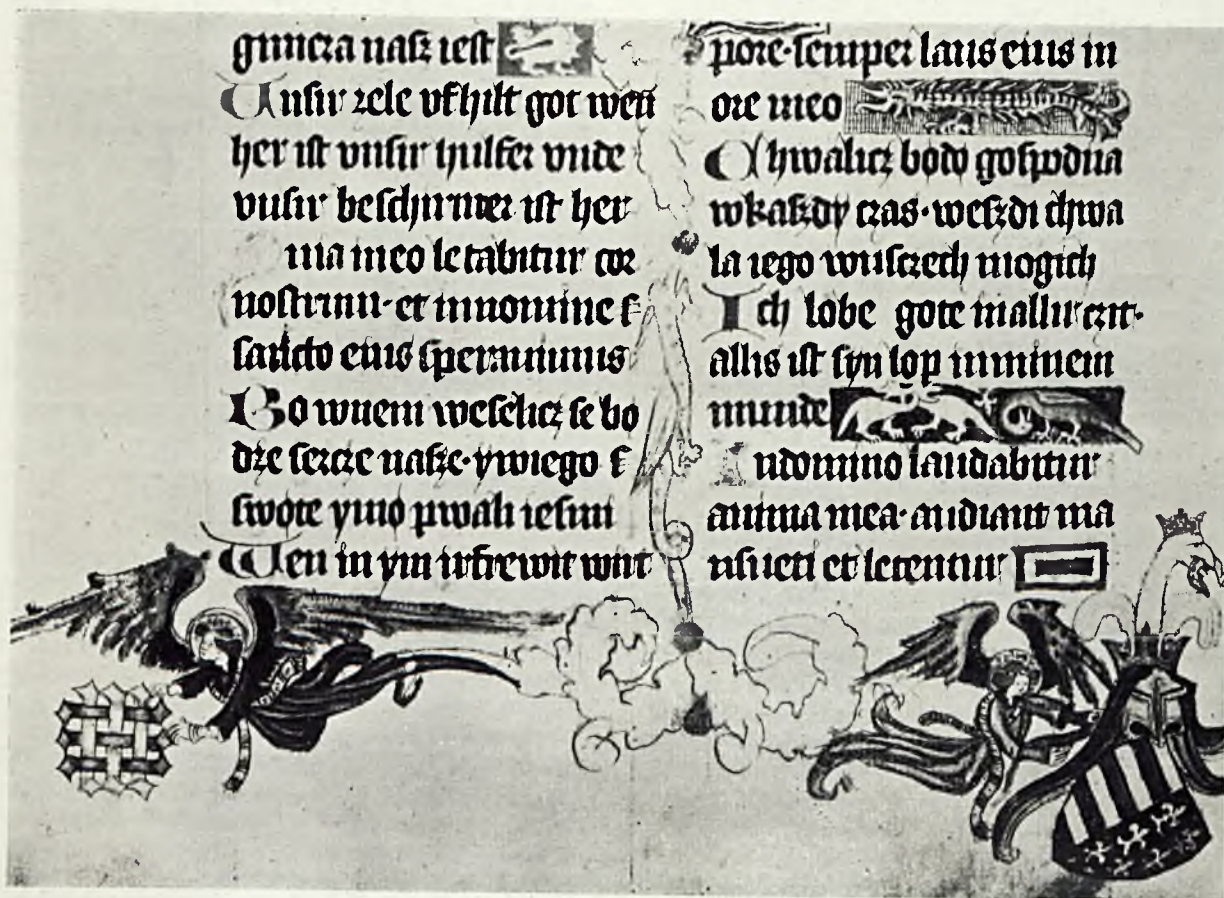 gimcza nasz iest
Unsir zele ufhilt got wen
her ist unsir hulfer unde
unsir beschirmer ist her
nia meo letabitur cor
nostrum · et innomine s
sancto eius speravimus
Bo wnem weselicz se bo
dze sercze nasze · ywiego s
swote ymo pwali iesmi
Wen in ym irfrewit wirt
pore · semper laus eius in
ore meo
Chwalicz bodo gospodna
wkaszdy czas · weszdi chwa
la iego wusczech mogich
Ich lobe gote mallir czit ·
allis ist syn lop inminem
munde
Indomino laudabitur
anima mea · audiant ma
nsueti et letentur